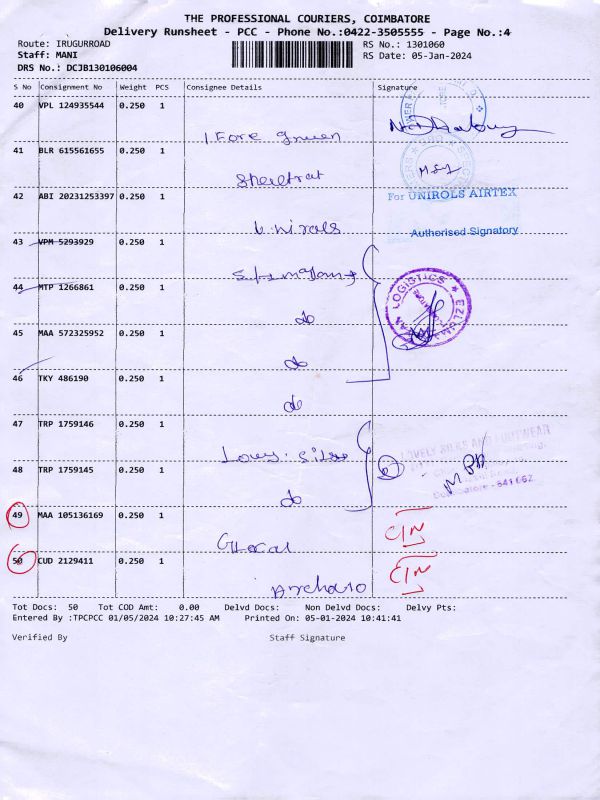 THE PROFESSIONAL COURIERS, COIMBATORE
Delivery Runsheet - PCC - Phone No.:0422-3505555 - Page No.:4
Route: IRUGURROAD
RS No.: 1301060
Staff: MANI
RS Date: 05-Jan-2024
DRS No.: DCJB130106004
S No Consignment No Weight PCS Consignee Details Signature
40 VPL 124935544 0.250 1
41 BLR 615561655 0.250 1
MSI
42 ABI 20231253397 0.250 1
For UNIROLS AIRTEX
Unirols
Authorised Signatory
43 VPM 5293929 0.250 1
44 MTP 1266861 0.250 1
LOGISTICS
do
45 MAA 572325952 0.250 1
do
46 TKY 486190 0.250 1
do
47 TRP 1759146 0.250 1
LOVELY SILKS AND FOOTWEAR
48 TRP 1759145 0.250 1
Coimbatore - 641 062.
do
49 MAA 105136169 0.250 1
50 CUD 2129411 0.250 1
Tot Docs: 50 Tot COD Amt: 0.00 Delvd Docs: Non Delvd Docs: Delvy Pts:
Entered By :TPCPCC 01/05/2024 10:27:45 AM Printed On: 05-01-2024 10:41:41
Verified By Staff Signature